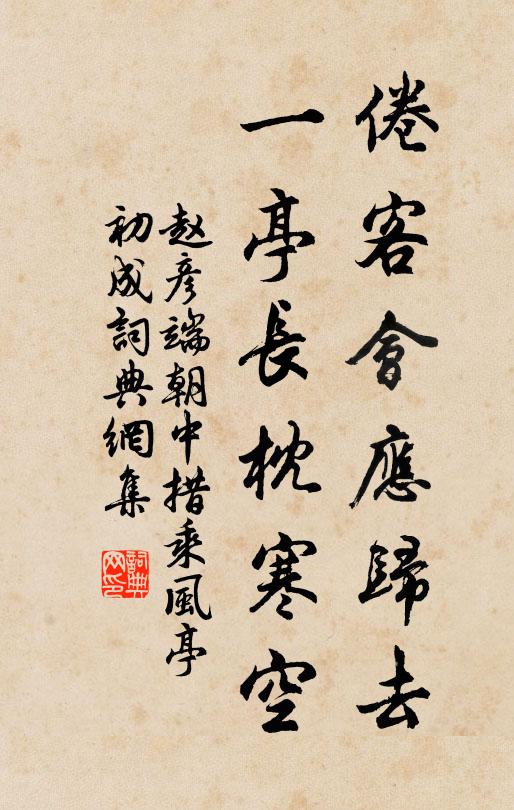 倦客會應歸去
一亭長枕寒空
赵彦端朝中措乘風亭
初成詞典網集
詞典
网印